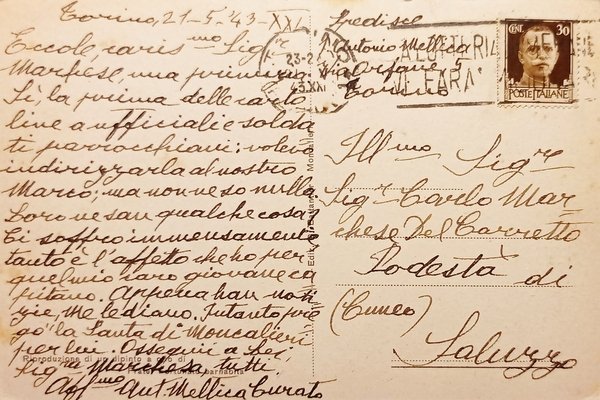 Torino, 21-5-43-XXI
Eccole, cariss.mo Sig.r
Marchese, una primizia
Sì, la prima delle carto
line a ufficiali e solda
ti parrocchiani: volevo
indirizzarla al nostro
Marco; ma non ne so nulla
Loro ne san qualche cosa
Ci soffro immensamente
tanto è l'affetto che ho per
quel mio caro giovane ca
pitano. Appena han noti
zie, me le diano. Intanto pre
go "la Santa di Moncalieri
per lui. Ossequi a Lei
Sig.ra Marchesa tutti.
Aff.mo Ant. Mellica Curato
Riproduzione di un dipinto a olio di
barnabita
Spedisce
Antonio Mellica
Via
Torino
23-2
43.XXI
CENT. 30
POSTE ITALIANE
Ill.mo Sig.re
Sig.r Carlo Mar
chese Del Carretto
Podestà di
(Cuneo)
Saluzzo